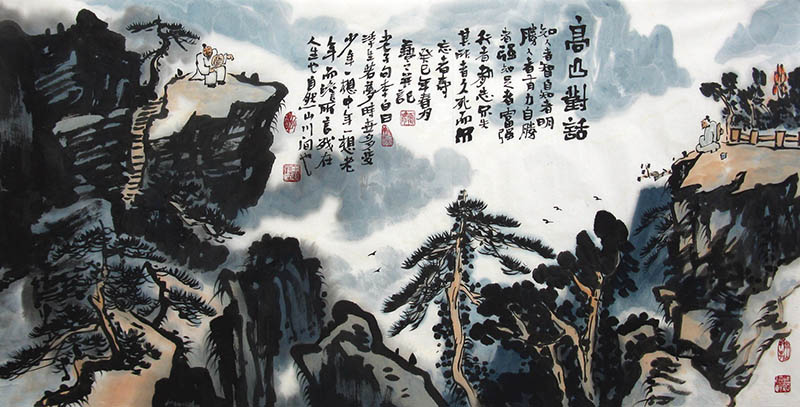 高山對話
知人者智自知者明
勝人者有力自勝
者强知足者富强
行者有志不失
其所者久死而不
亡者壽
癸巳年春
并記
老子句李白曰
浮生若夢時世多變
少年一想中年一想老
年而所言或在
人生也自然山川间也